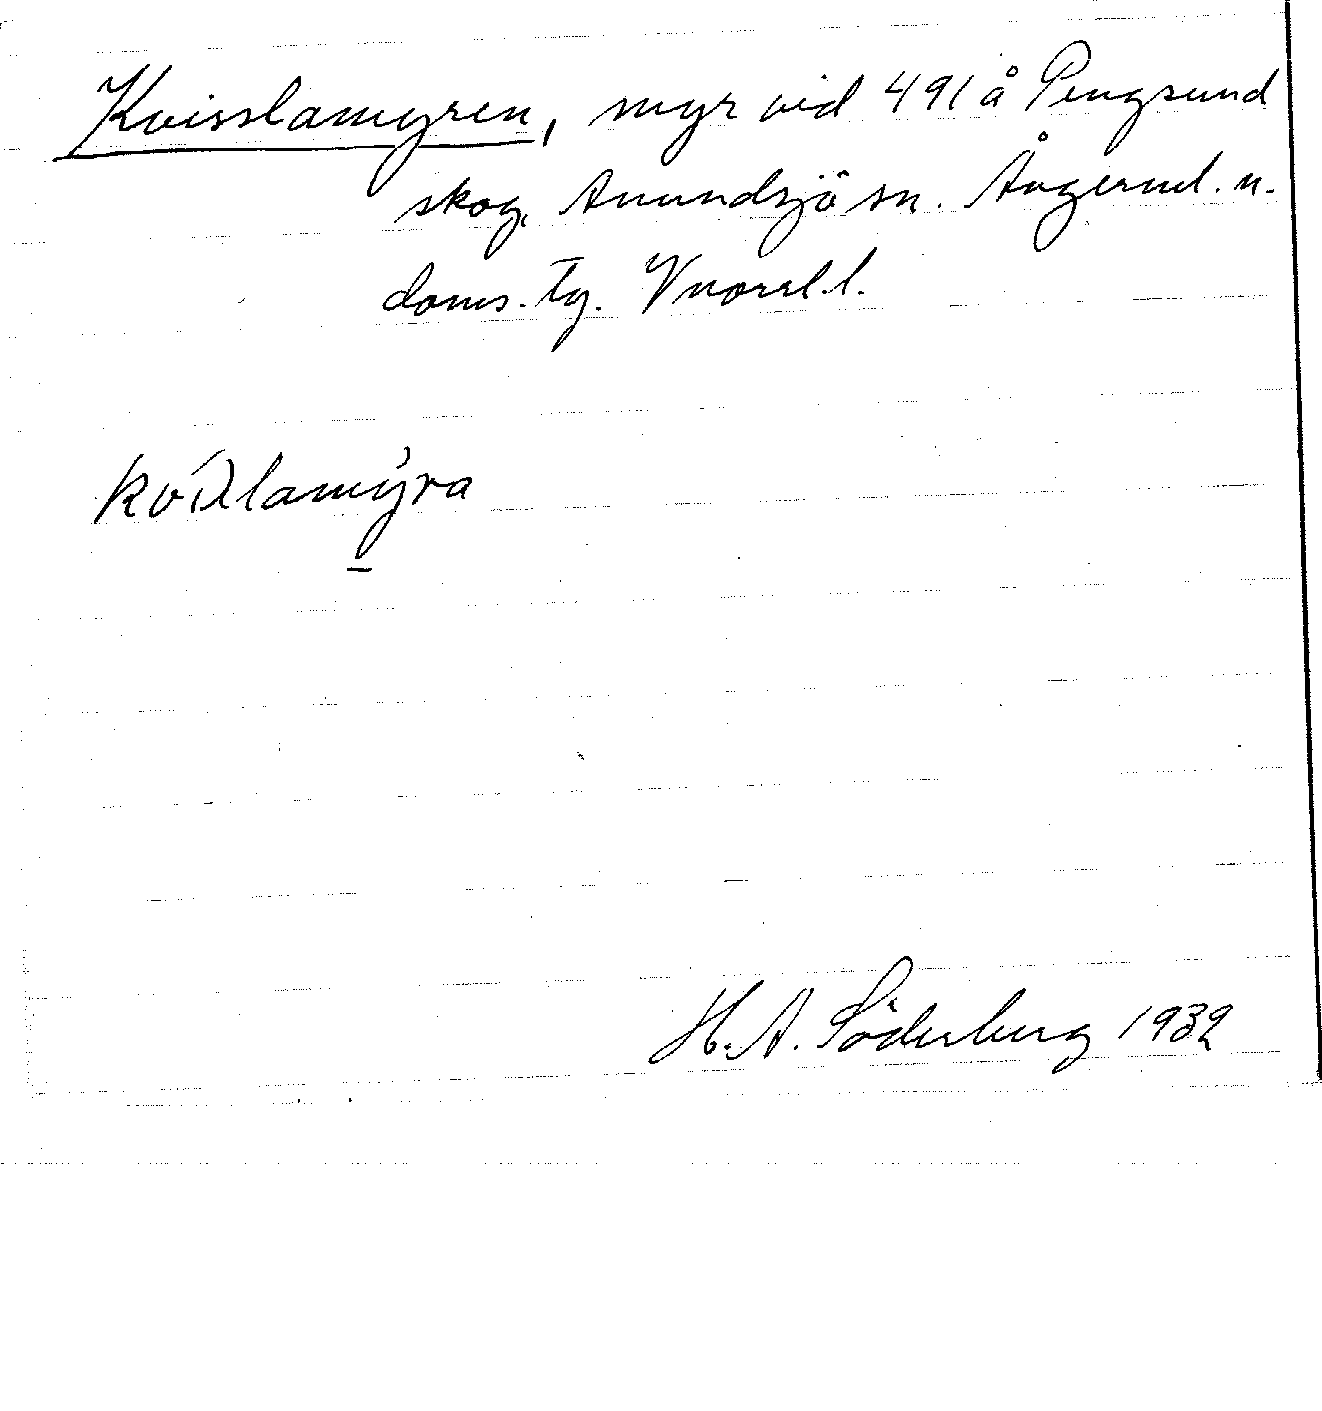 Kvisslamyren, myr vid 491 å Pengsund
skog, Anundsjö sn. Ångerml. n.
doms. tg. Vnorrl. l.
H. A. Söderberg 1932